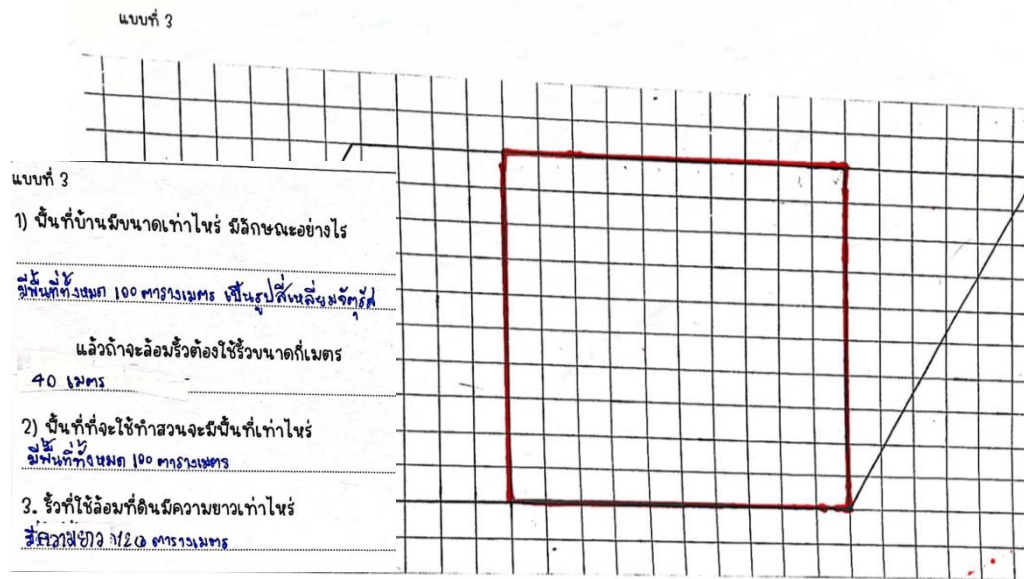 แบบที่ 3
แบบที่ 3
1) พื้นที่บ้านมีขนาดเท่าไหร่ มีลักษณะอย่างไร
มีพื้นที่ทั้งหมด 100 ตารางเมตร เป็นรูปสี่เหลี่ยมจัตุรัส
แล้วถ้าจะล้อมรั้วต้องใช้รั้วขนาดกี่เมตร
40 เมตร
2) พื้นที่ที่จะใช้ทำสวนจะมีพื้นที่เท่าไหร่
มีพื้นที่ทั้งหมด 100 ตารางเมตร
3. รั้วที่ใช้ล้อมที่ดินมีความยาวเท่าไหร่
มีความยาว 120 ตารางเมตร